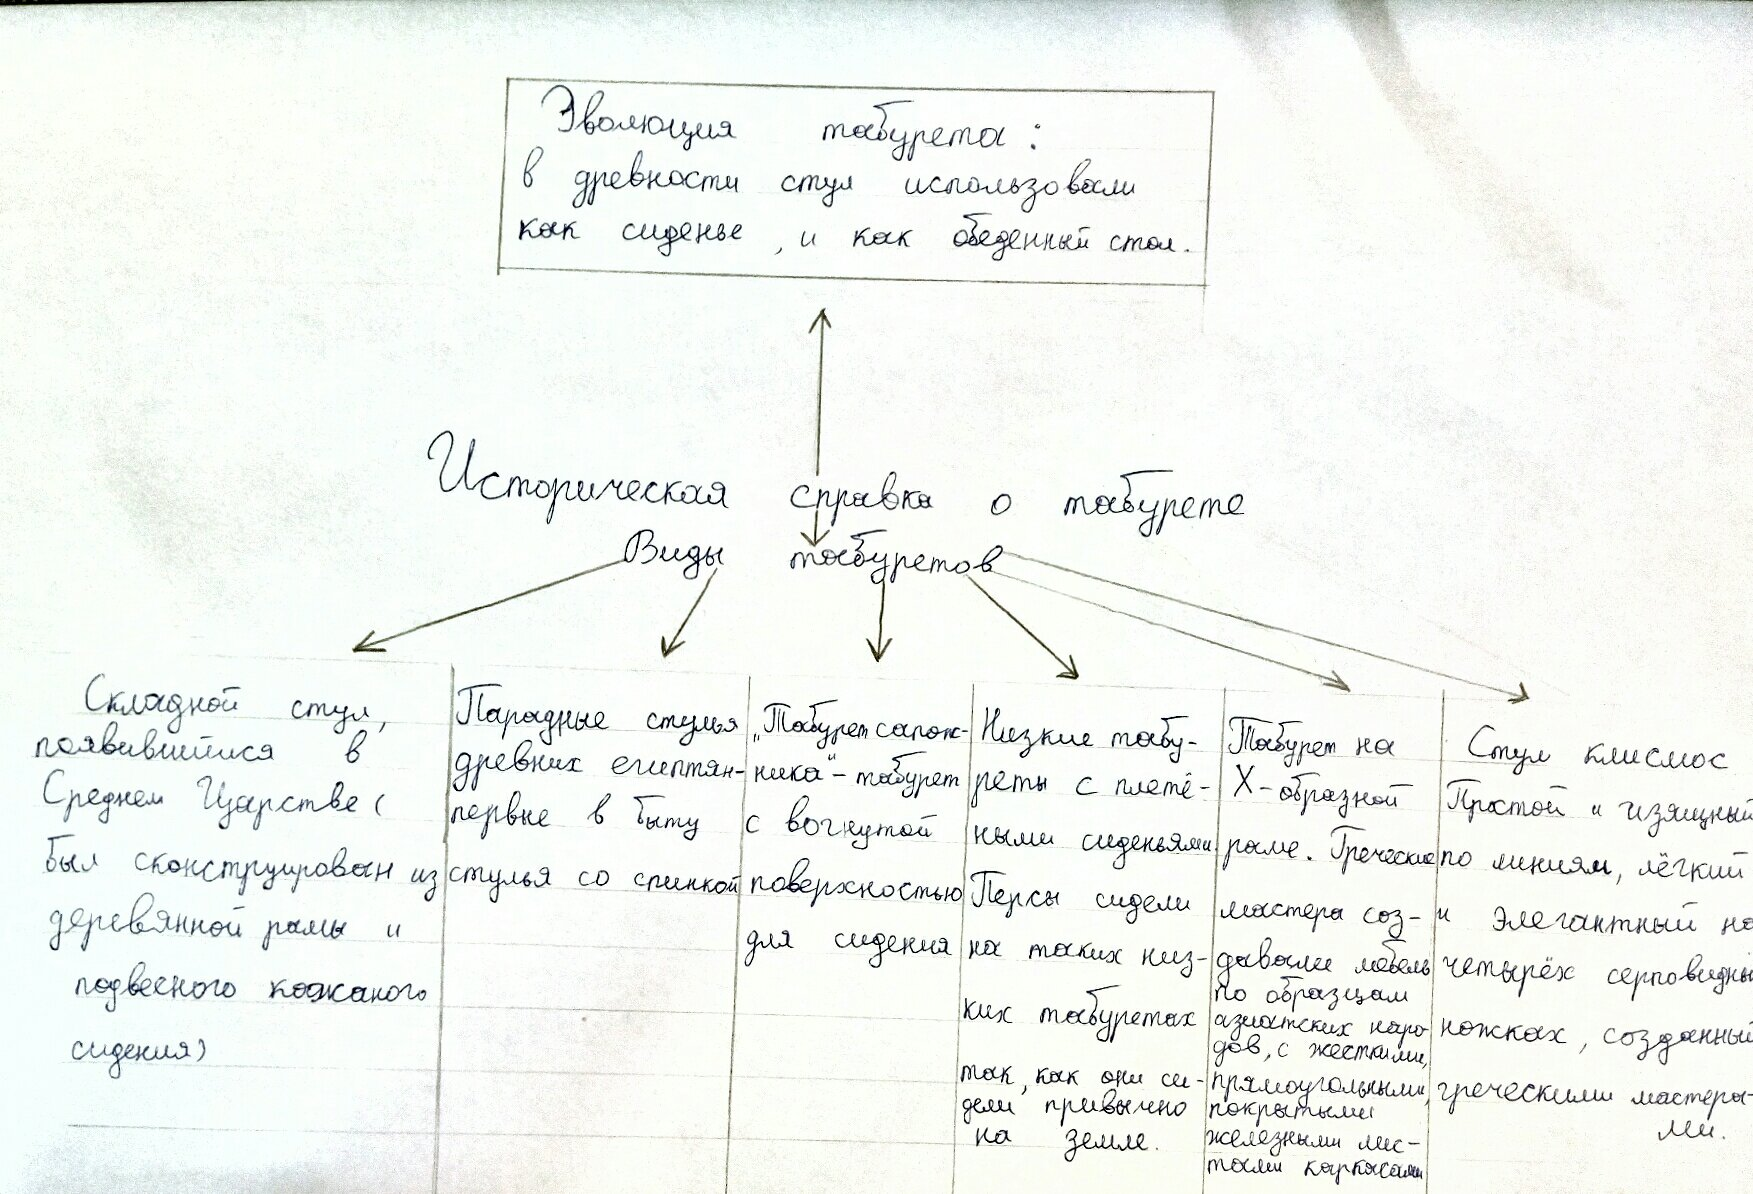 Эволюция табурета:
в древности стул использовали
как сиденье, и как обеденный стол.
Историческая справка о табурете
Виды табуретов
Складной стул,
появившийся в
Среднем Царстве (
был сконструирован из
деревянной рамы и
подвесного кожаного
сидения)
Парадные стулья
древних египтян-
первые в быту
стулья со спинкой
„Табурет сапож-
ника" - табурет
с вогнутой
поверхностью
для сидения
Низкие табу-
реты с плетё-
ными сиденьями
Персы сидели
на таких низ-
ких табуретах
так, как они си-
дели привычно
на земле.
Табурет на
X-образной
раме. Греческие
мастера соз-
давали мебель
по образцам
азиатских наро-
дов, с жесткими,
прямоугольными,
покрытыми
железными лис-
тами каркасами
Стул клисмос
Простой и изящный
по линиям, лёгкий
и элегантный на
четырёх серповидны
ножках, созданный
греческими мастера-
ми.